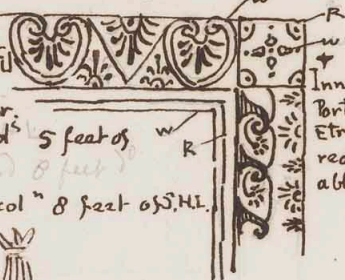 w
R
w
+
Inn
Port
Etr
rec
abl
r.
5 feet of
w
R
8 feet
col n 8 feet of S.H.I.